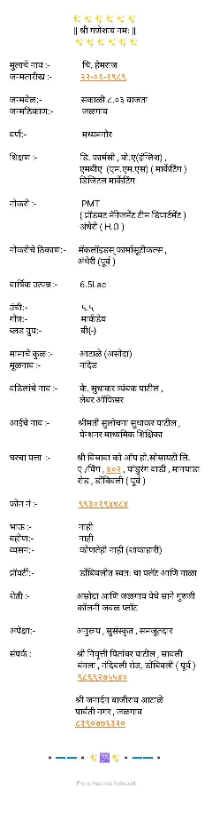 || श्री गणेशाय नमः ||
मुलाचे नाव :- चि. हेमराज
जन्मतारीख :- २२-०२-१९८९
जन्मवेळ:- सकाळी ८.०३ वाजता
जन्मठिकाण:- जळगाव
वर्ण:- मध्यमगोर
शिक्षण :- डि. फार्मसी , बी.ए(इंग्लिश) ,
एमबीए (एम.एम.एस) ( मार्केटिंग )
डिजिटल मार्केटिंग
नोकरी :- PMT
( प्रॉडक्ट मॅनेजमेंट टीम डिपार्टमेंट )
अंधेरी ( H.O )
नोकरीचे ठिकाण:- मॅकलॉइड्स् फार्मासूटीकल्स ,
अंधेरी (पूर्व )
वार्षिक उत्पन्न :- 6.5Lac
उंची:- ५.५
गोत्र:- मार्कंडेय
ब्लड ग्रुप:- बी(-)
मामाचे कुळ :- आटाळे (असोदा)
मूळगाव :- नांदेड
वडिलांचे नाव :- के. सुधाकर त्र्यंबक पाटील ,
लेबर ऑफिसर
आईचे नाव :- श्रीमती सुलोचना सुधाकर पाटील ,
पेन्शनर माध्यमिक शिक्षिका
घरचा पत्ता :- श्री विसावा को ऑप हो.सोसायटी लि.
ए /विंग , ४०२ , पांडुरंग वाडी , मानपाडा
रोड , डोंबिवली ( पूर्व )
फोन नं :- ९९३०२९४७८४
भाऊ :- नाही
बहीण:- नाही
व्यसन:- कोणतेही नाही (शाकाहारी)
प्रॉपर्टी:- डोंबिवलीत स्वतः चा फ्लॅट आणि गाळा
शेती :- असोदा आणि जळगाव येथे साने गुरुजी
कॉलनी जवळ प्लॉट
अपेक्षा:- अनुरूप , सुसंस्कृत , समजूतदार
संपर्क : श्री निवृत्ती पितांबर पाटील , सावली
बंगला , नांदिवली रोड, डोंबिवली ( पूर्व )
९८६९२७५५४०
श्री जनार्दन बाजीराव आटाळे
पार्वती नगर , जळगाव
८३९०७७६३२०
From Huawei Notepad